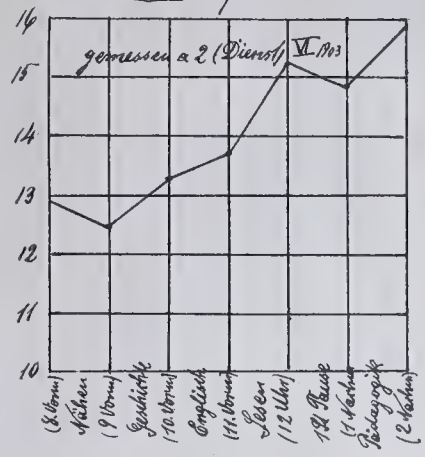 16
gemessen a 2 (Dienst) VI 1903
15
14
13
12
11
10
(8 Vorm)
Nähen
(9 Vorm)
Geschichte
(10. Vorm)
Englisch
(11. Vorm)
Lesen
(12 Uhr)
1 St Pause
(1 Nachm)
Pädagogik
(2 Nachm)